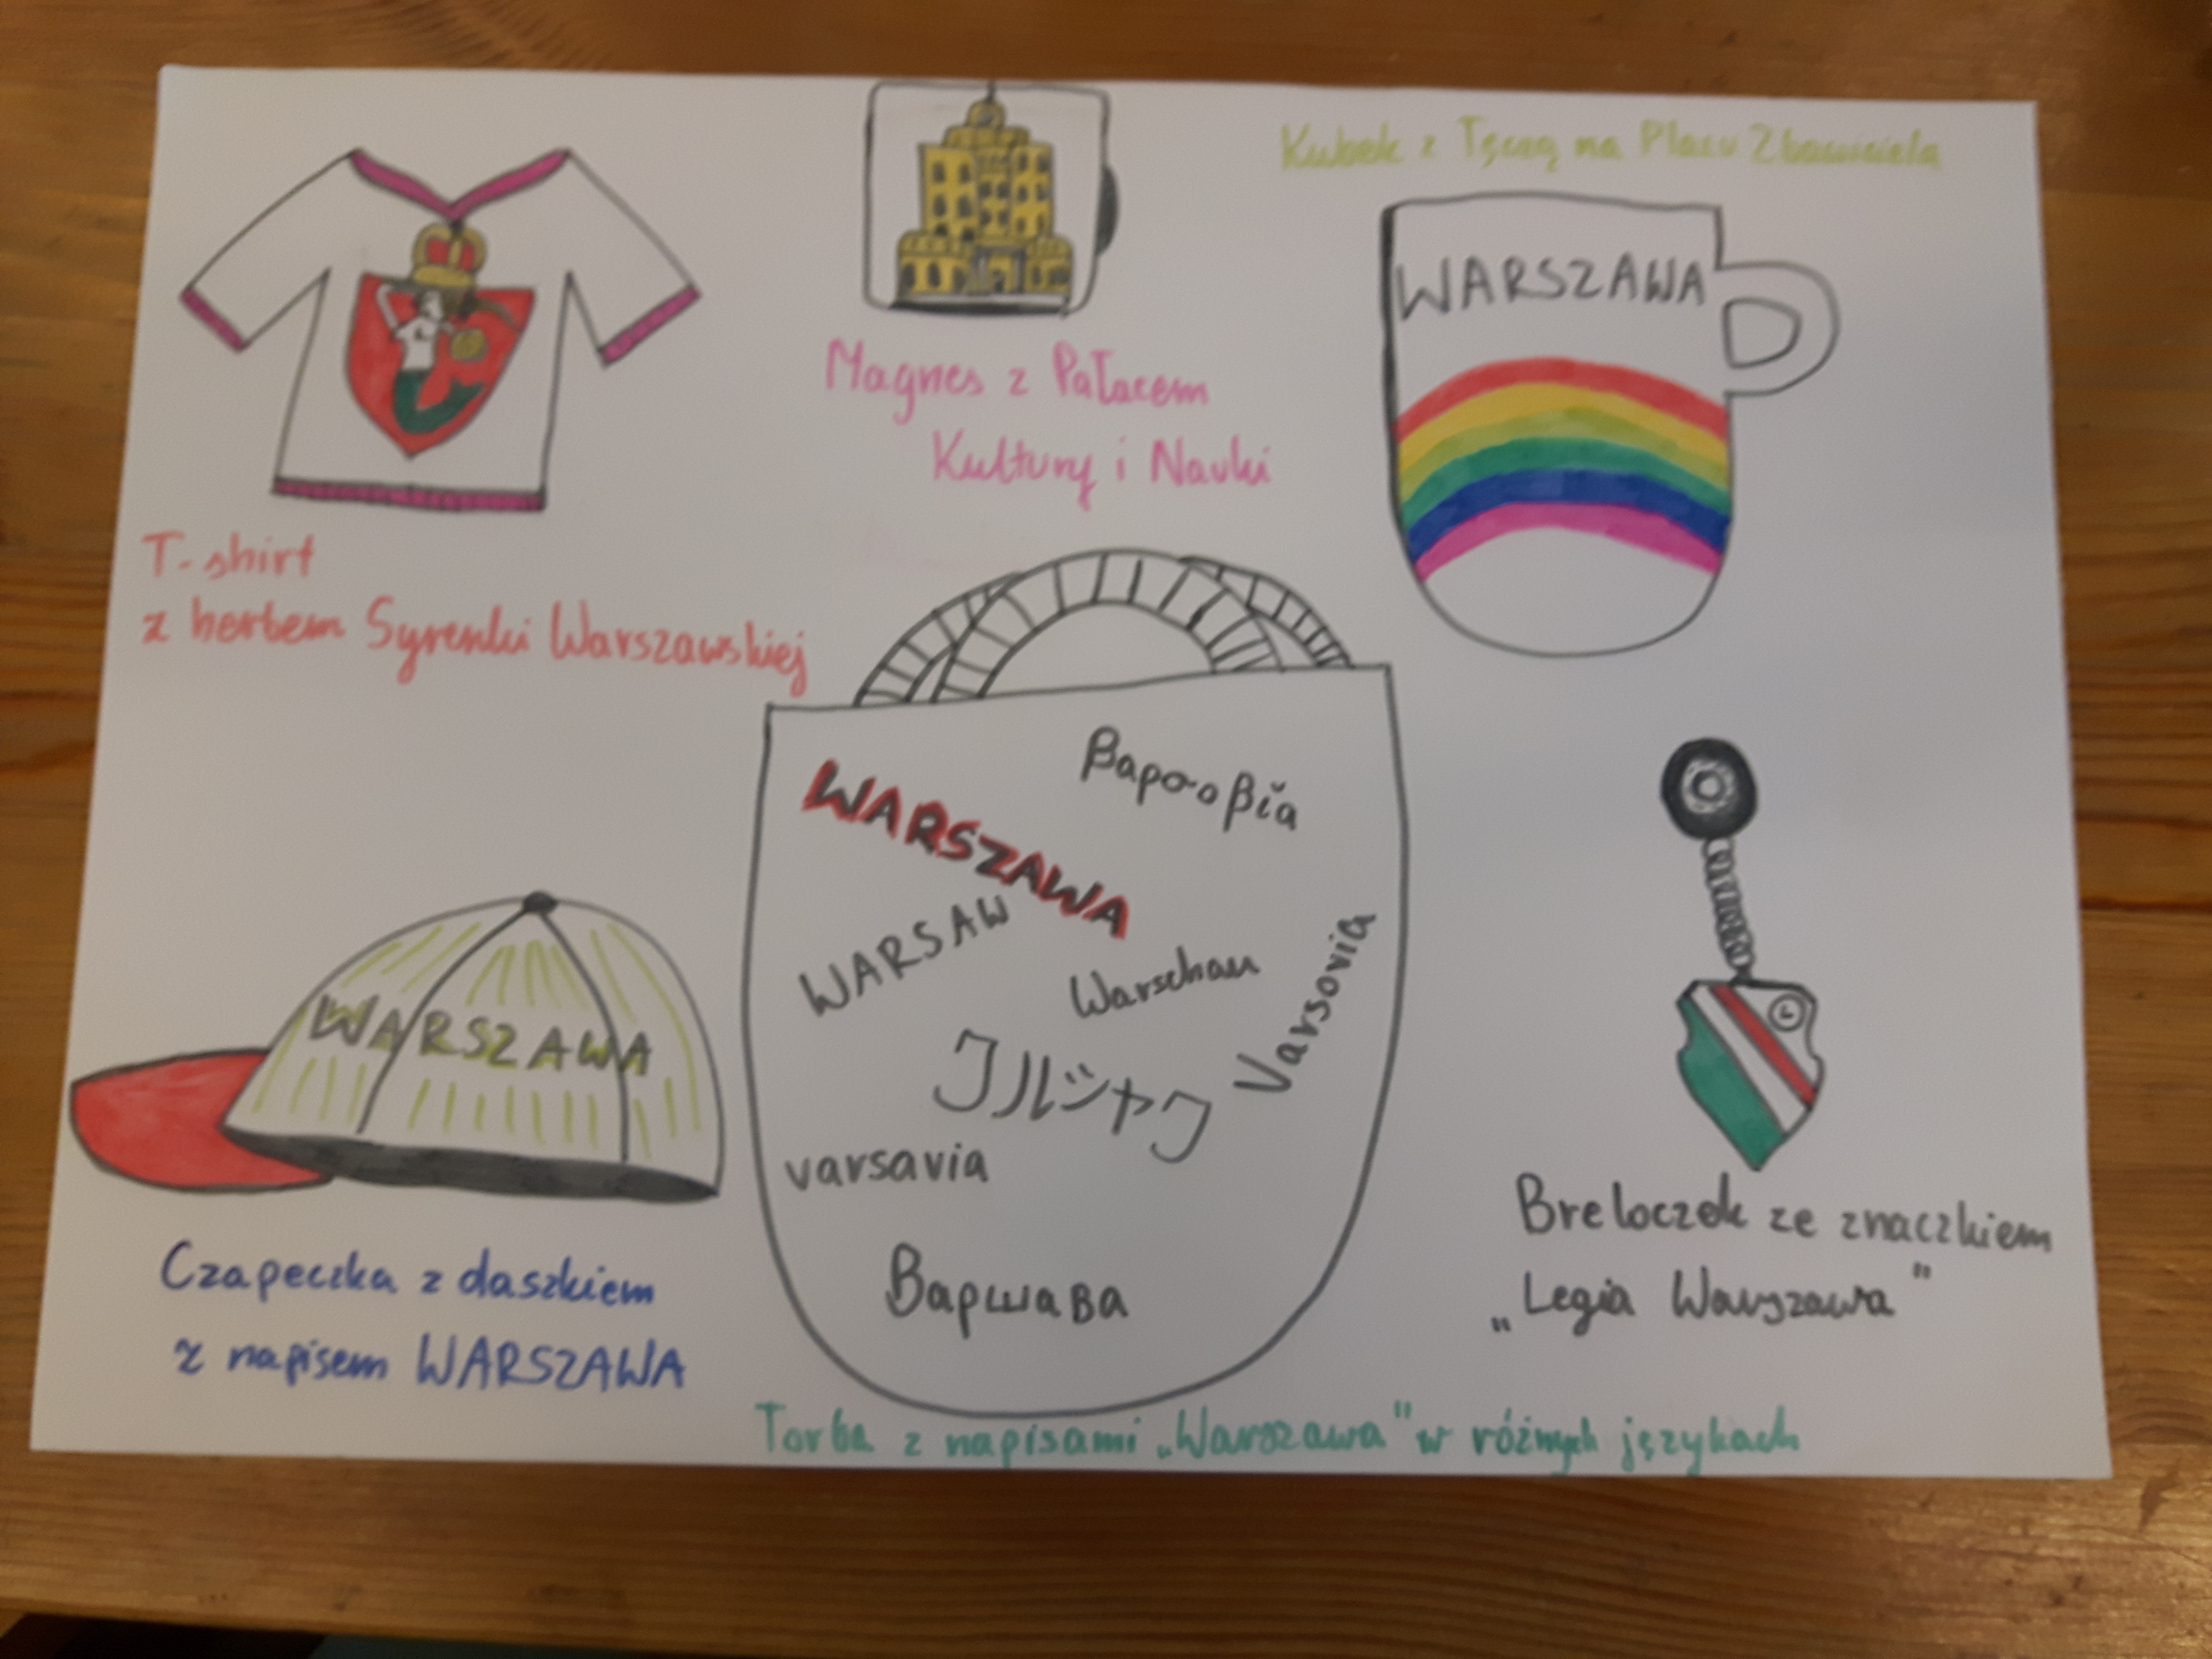 Kubek z Tęczą na Placu Zbawiciela
WARSZAWA
Magnes z Pałacem
Kultury i Nauki
T-shirt
z herbem Syrenki Warszawskiej
WARSZAWA
Βαρσοβία
WARSAW
Warschau
Varsovia
ワルシャワ
varsavia
Варшава
WARSZAWA
Czapeczka z daszkiem
z napisem WARSZAWA
L
Breloczek ze znaczkiem
„Legia Warszawa"
Torba z napisami „Warszawa" w różnych językach